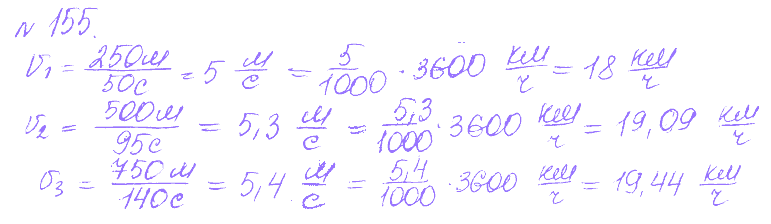 № 155.
v₁ = 250м/50с = 5 м/с = 5/1000 · 3600 км/ч = 18 км/ч
v₂ = 500м/95с = 5,3 м/с = 5,3/1000 · 3600 км/ч = 19,09 км/ч
v₃ = 750м/140с = 5,4 м/с = 5,4/1000 · 3600 км/ч = 19,44 км/ч